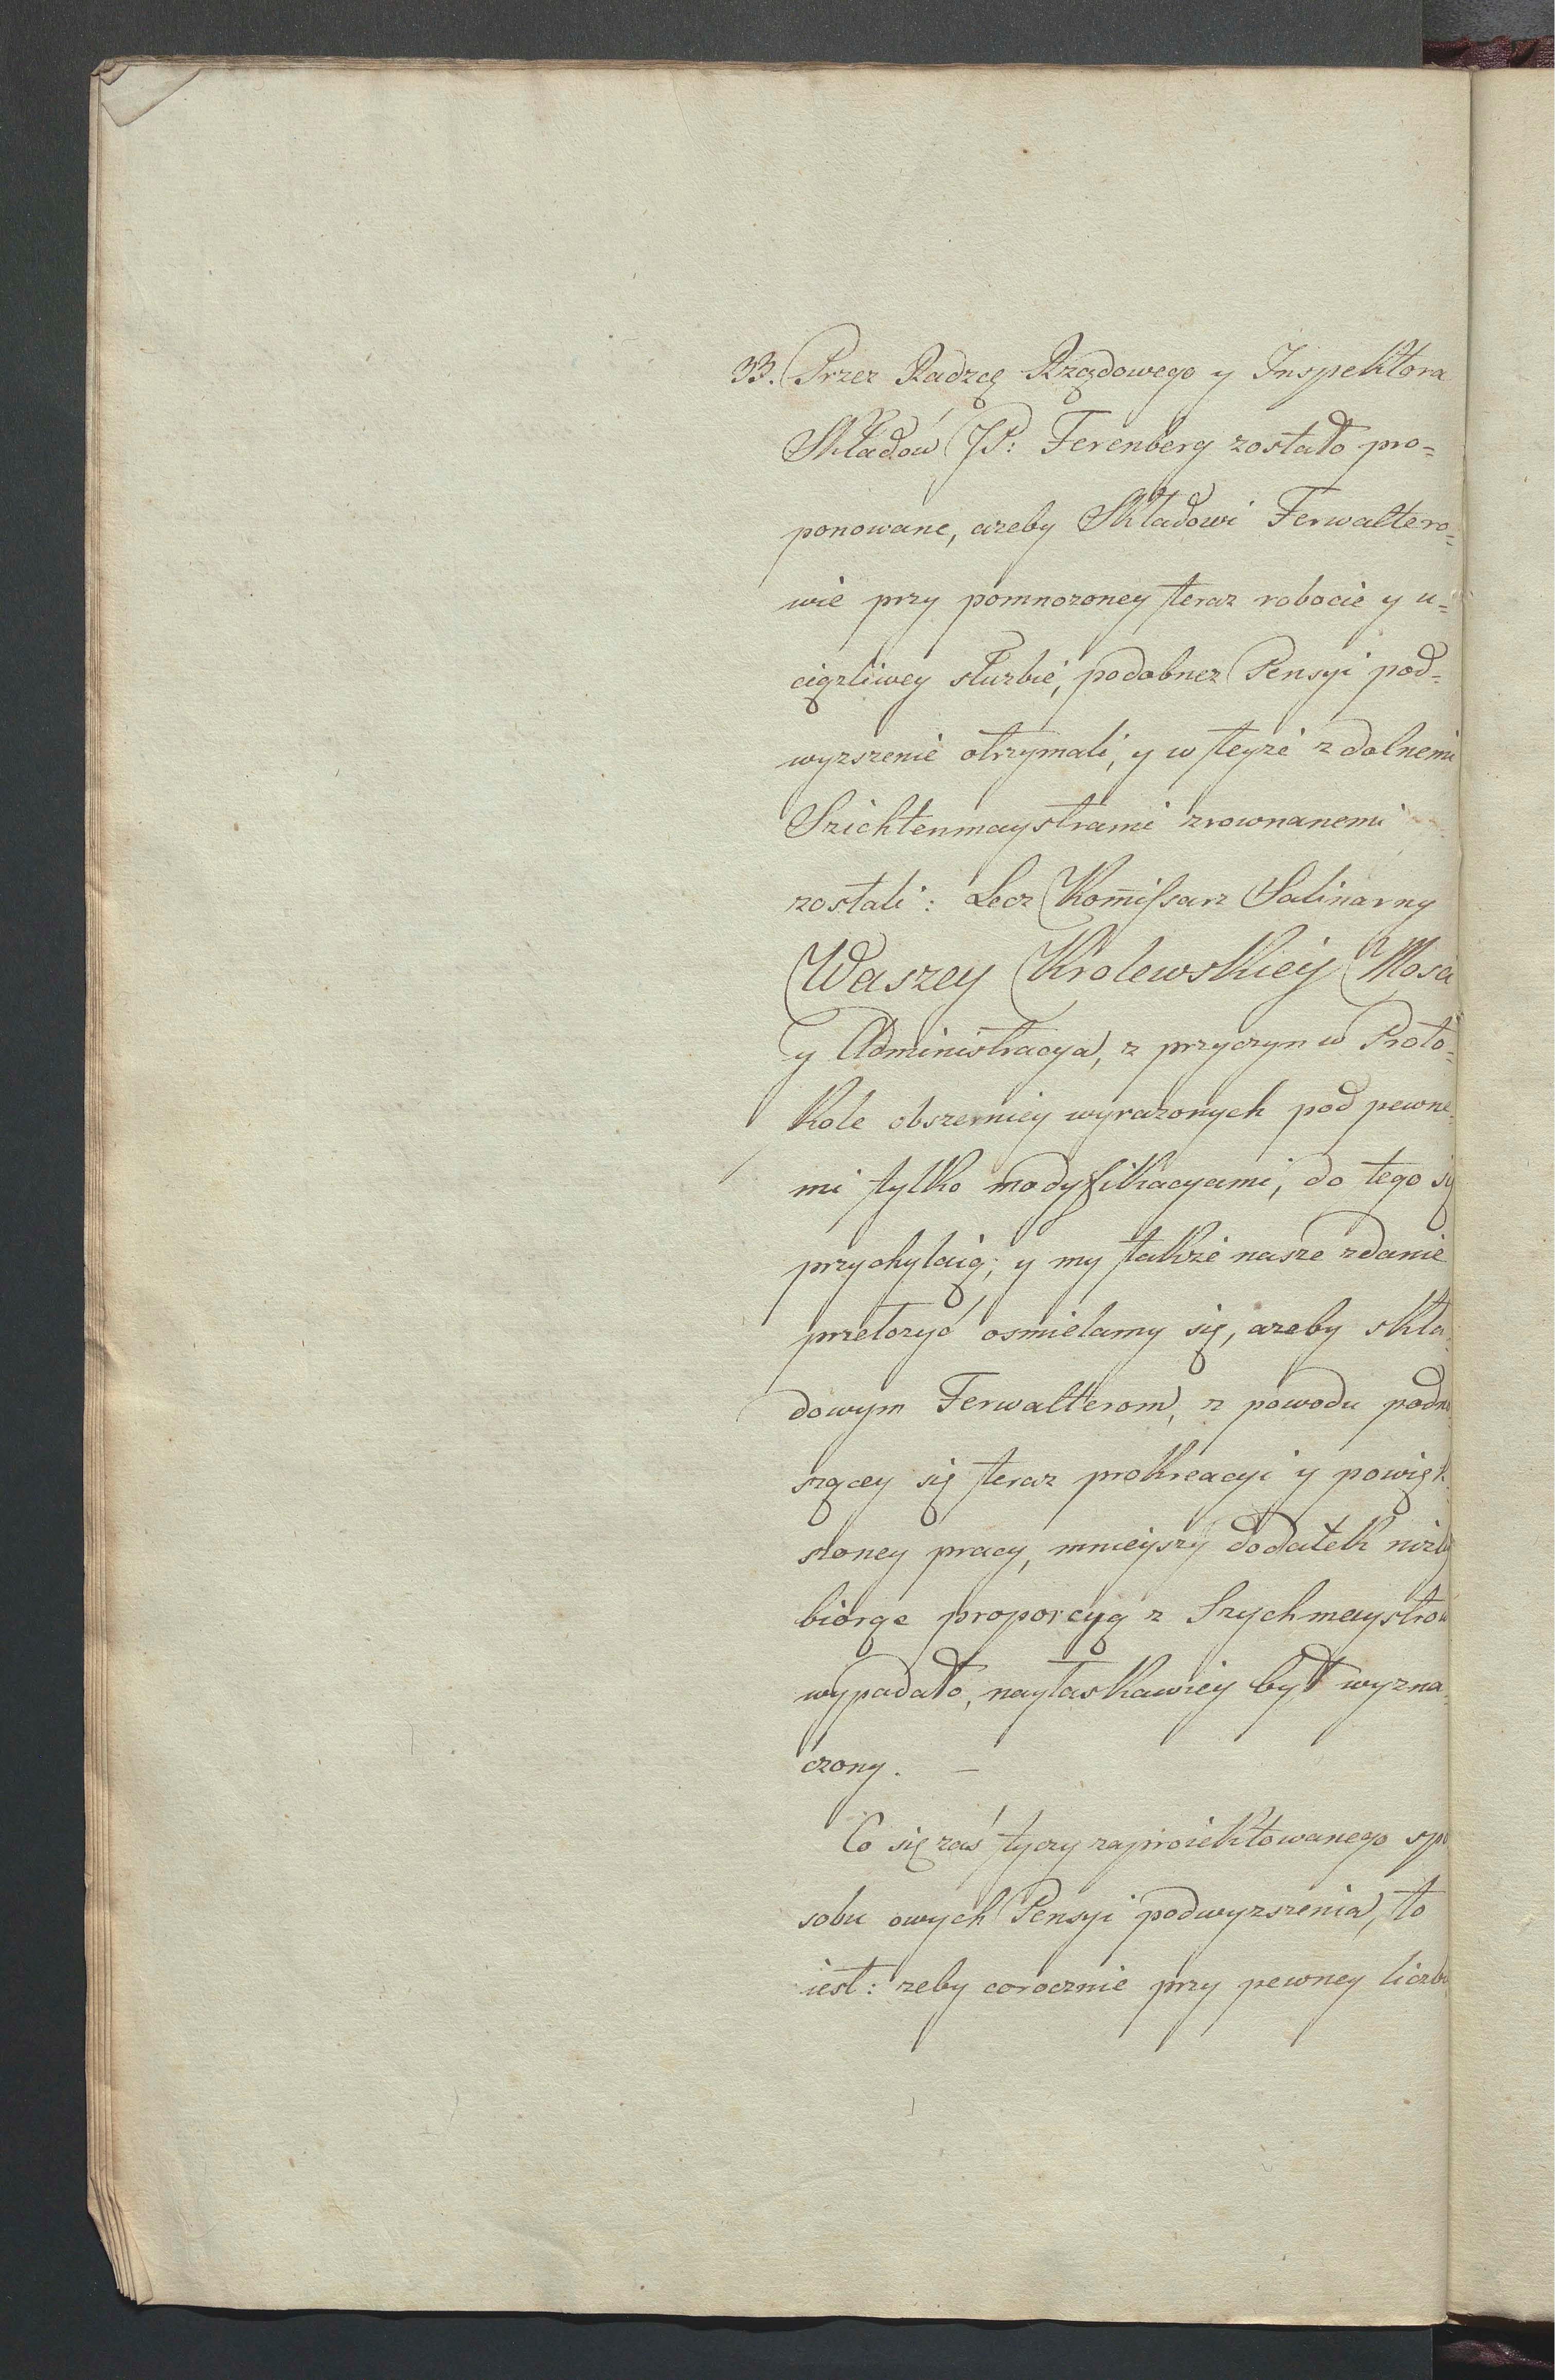 33. Przez Radzcę Rządowego y Inspektora
Składów JP: Ferenberg zostało pro=
ponowane, azeby Składowi Ferwaltero=
wie przy pomnozoney teraz robocie y u=
ciązliwey słuzbie, podobnez Pensyi pod=
wyzszenie otrzymali, y w teyze z dolnemi
Szichtenmaystrami zrownanemi
zostali: Lecz Kom̄issarz Salinarny
Waszey Krolewskiey Mosci
y Administracya, z przyczyn w Proto=
kole obszerniey wyrazonych pod pewne=
mi tylko modyfikacyami, do tego się
przychylaią; y my takze nasze zdanie
przełozyć osmielamy się, azeby skła=
dowym Ferwalterom, z powodu podno
szącey się teraz prokreacyi y powięk=
szoney pracy, mnieyszy dodatek nizby
biorąc proporcyą z Szychmaystrow
wypadało, nayłaskawiey był wyzna=
czony. —
Co się zaś tyczy zaproiektowanego spo
sobu owych Pensyi podwyzszenia, to
iest: zeby corocznie przy pewney liczbie